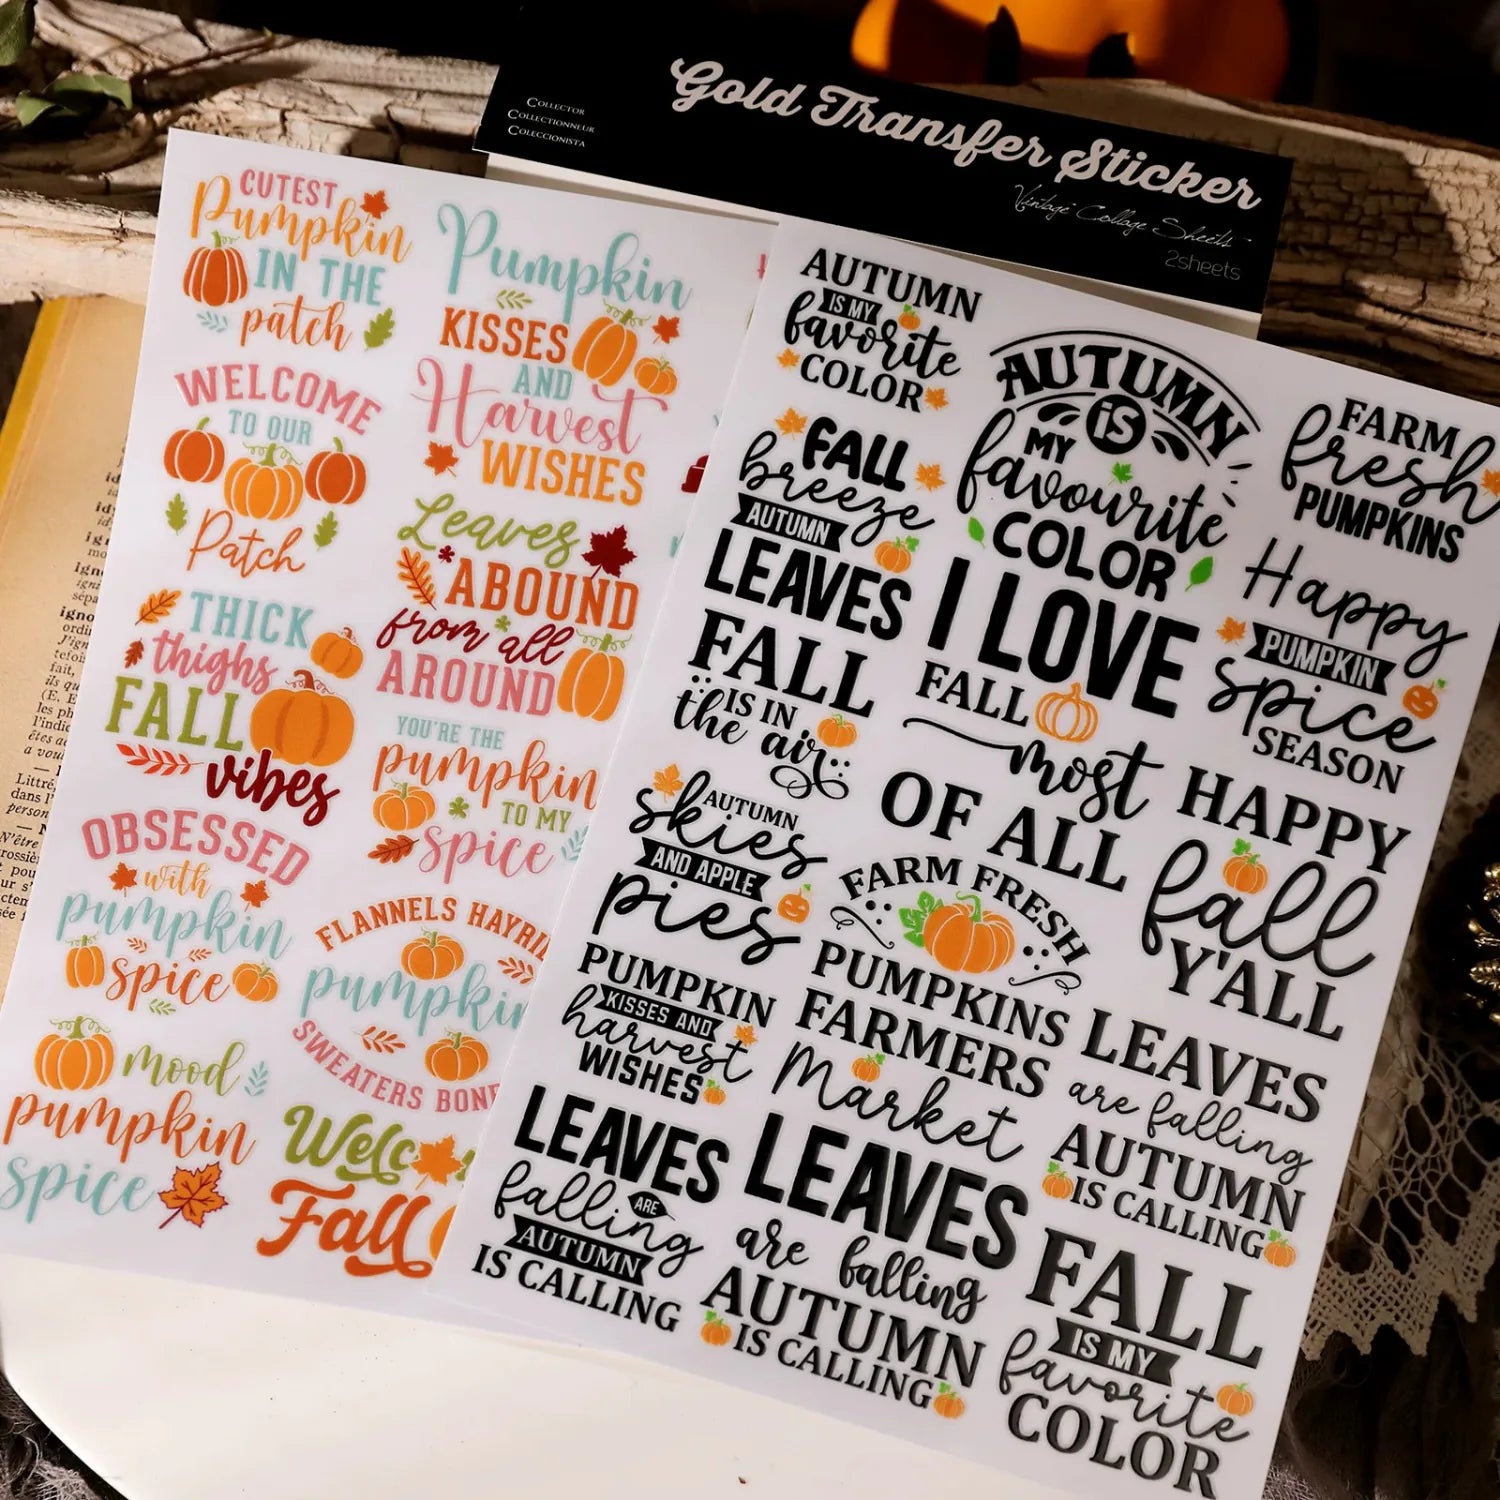 Collector
Collectionneur
Coleccionista
Gold Transfer Sticker
Vintage Collage Sheets
2sheets
CUTEST
Pumpkin
IN THE
patch
Pumpkin
KISSES
AND
Harvest
WISHES
WELCOME
TO OUR
Patch
Leaves
ABOUND
from all
AROUND
THICK
thighs
FALL
vibes
YOU'RE THE
pumpkin
TO MY
spice
OBSESSED
with
pumpkin
spice
FLANNELS HAYRI
pumpkin
SWEATERS BON
mood
pumpkin
spice
Welco
Fall
AUTUMN
IS MY
favorite
COLOR
AUTUMN
is
MY
favourite
COLOR
FARM
fresh
PUMPKINS
FALL
breeze
AUTUMN
LEAVES
I LOVE
FALL
most
OF ALL
Happy
PUMPKIN
spice
SEASON
FALL
IS IN
the air
HAPPY
fall
Y'ALL
AUTUMN
skies
AND APPLE
pies
FARM FRESH
PUMPKINS
FARMERS
Market
PUMPKIN
KISSES AND
harvest
WISHES
LEAVES
are falling
AUTUMN
IS CALLING
LEAVES
ARE
falling
AUTUMN
IS CALLING
LEAVES
are falling
AUTUMN
IS CALLING
FALL
IS MY
favorite
COLOR